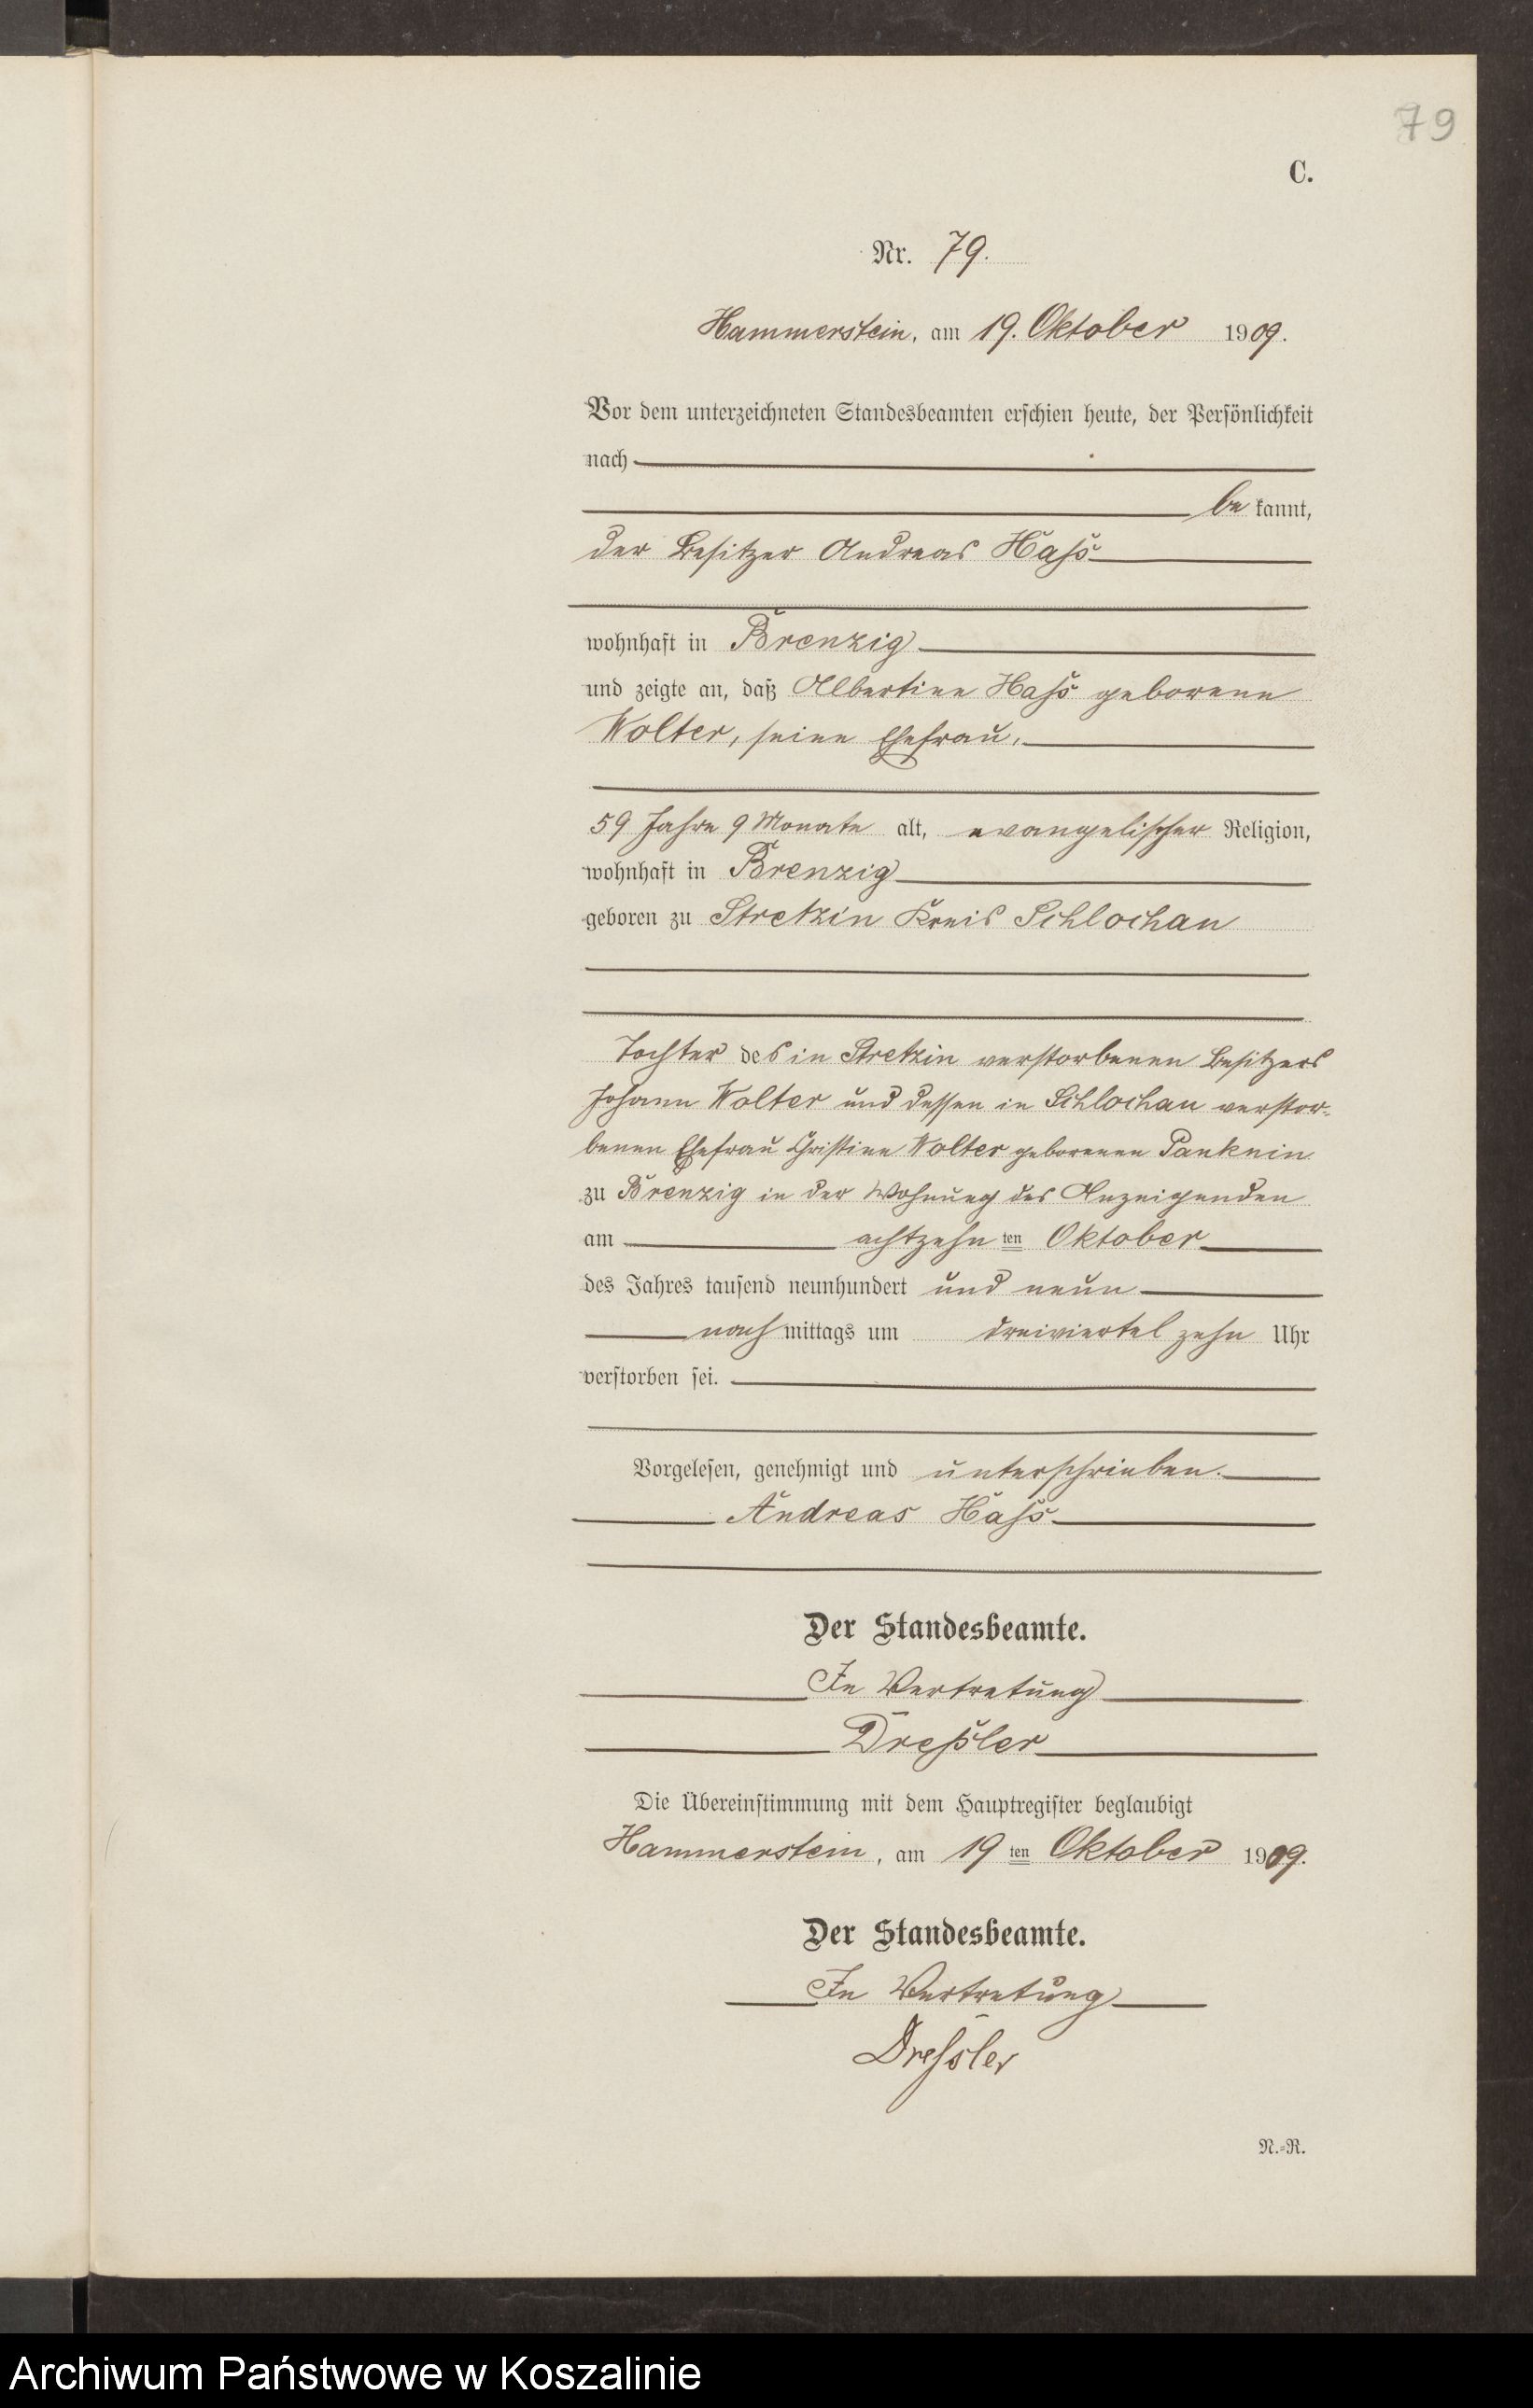 79
C.
Nr. 79.
Hammerstein, am 19. Oktober 1909.
Vor dem unterzeichneten Standesbeamten erschien heute, der Persönlichkeit
nach
be kannt,
der Besitzer Andreas Haß
wohnhaft in Brenzig
und zeigte an, daß Albertine Haß geborene
Wolter, seine Ehefrau,
59 Jahre 9 Monate alt, evangelischer Religion,
wohnhaft in Brenzig
geboren zu Stretzin Kreis Schlochau
Tochter des in Stretzin verstorbenen Besitzers
Johann Wolter und dessen in Schlochau verstor-
benen Ehefrau Christine Wolter geborenen Panknin
zu Brenzig in der Wohnung des Anzeigenden
am achtzehn ten Oktober
des Jahres tausend neunhundert und neun
nach mittags um dreiviertel zehn Uhr
verstorben sei.
Vorgelesen, genehmigt und unterschrieben.
Andreas Haß
Der Standesbeamte.
In Vertretung
Dreßler
Die Übereinstimmung mit dem Hauptregister beglaubigt
Hammerstein, am 19 ten Oktober 1909.
Der Standesbeamte.
In Vertretung
Dreßler
N.-R.
Archiwum Państwowe w Koszalinie